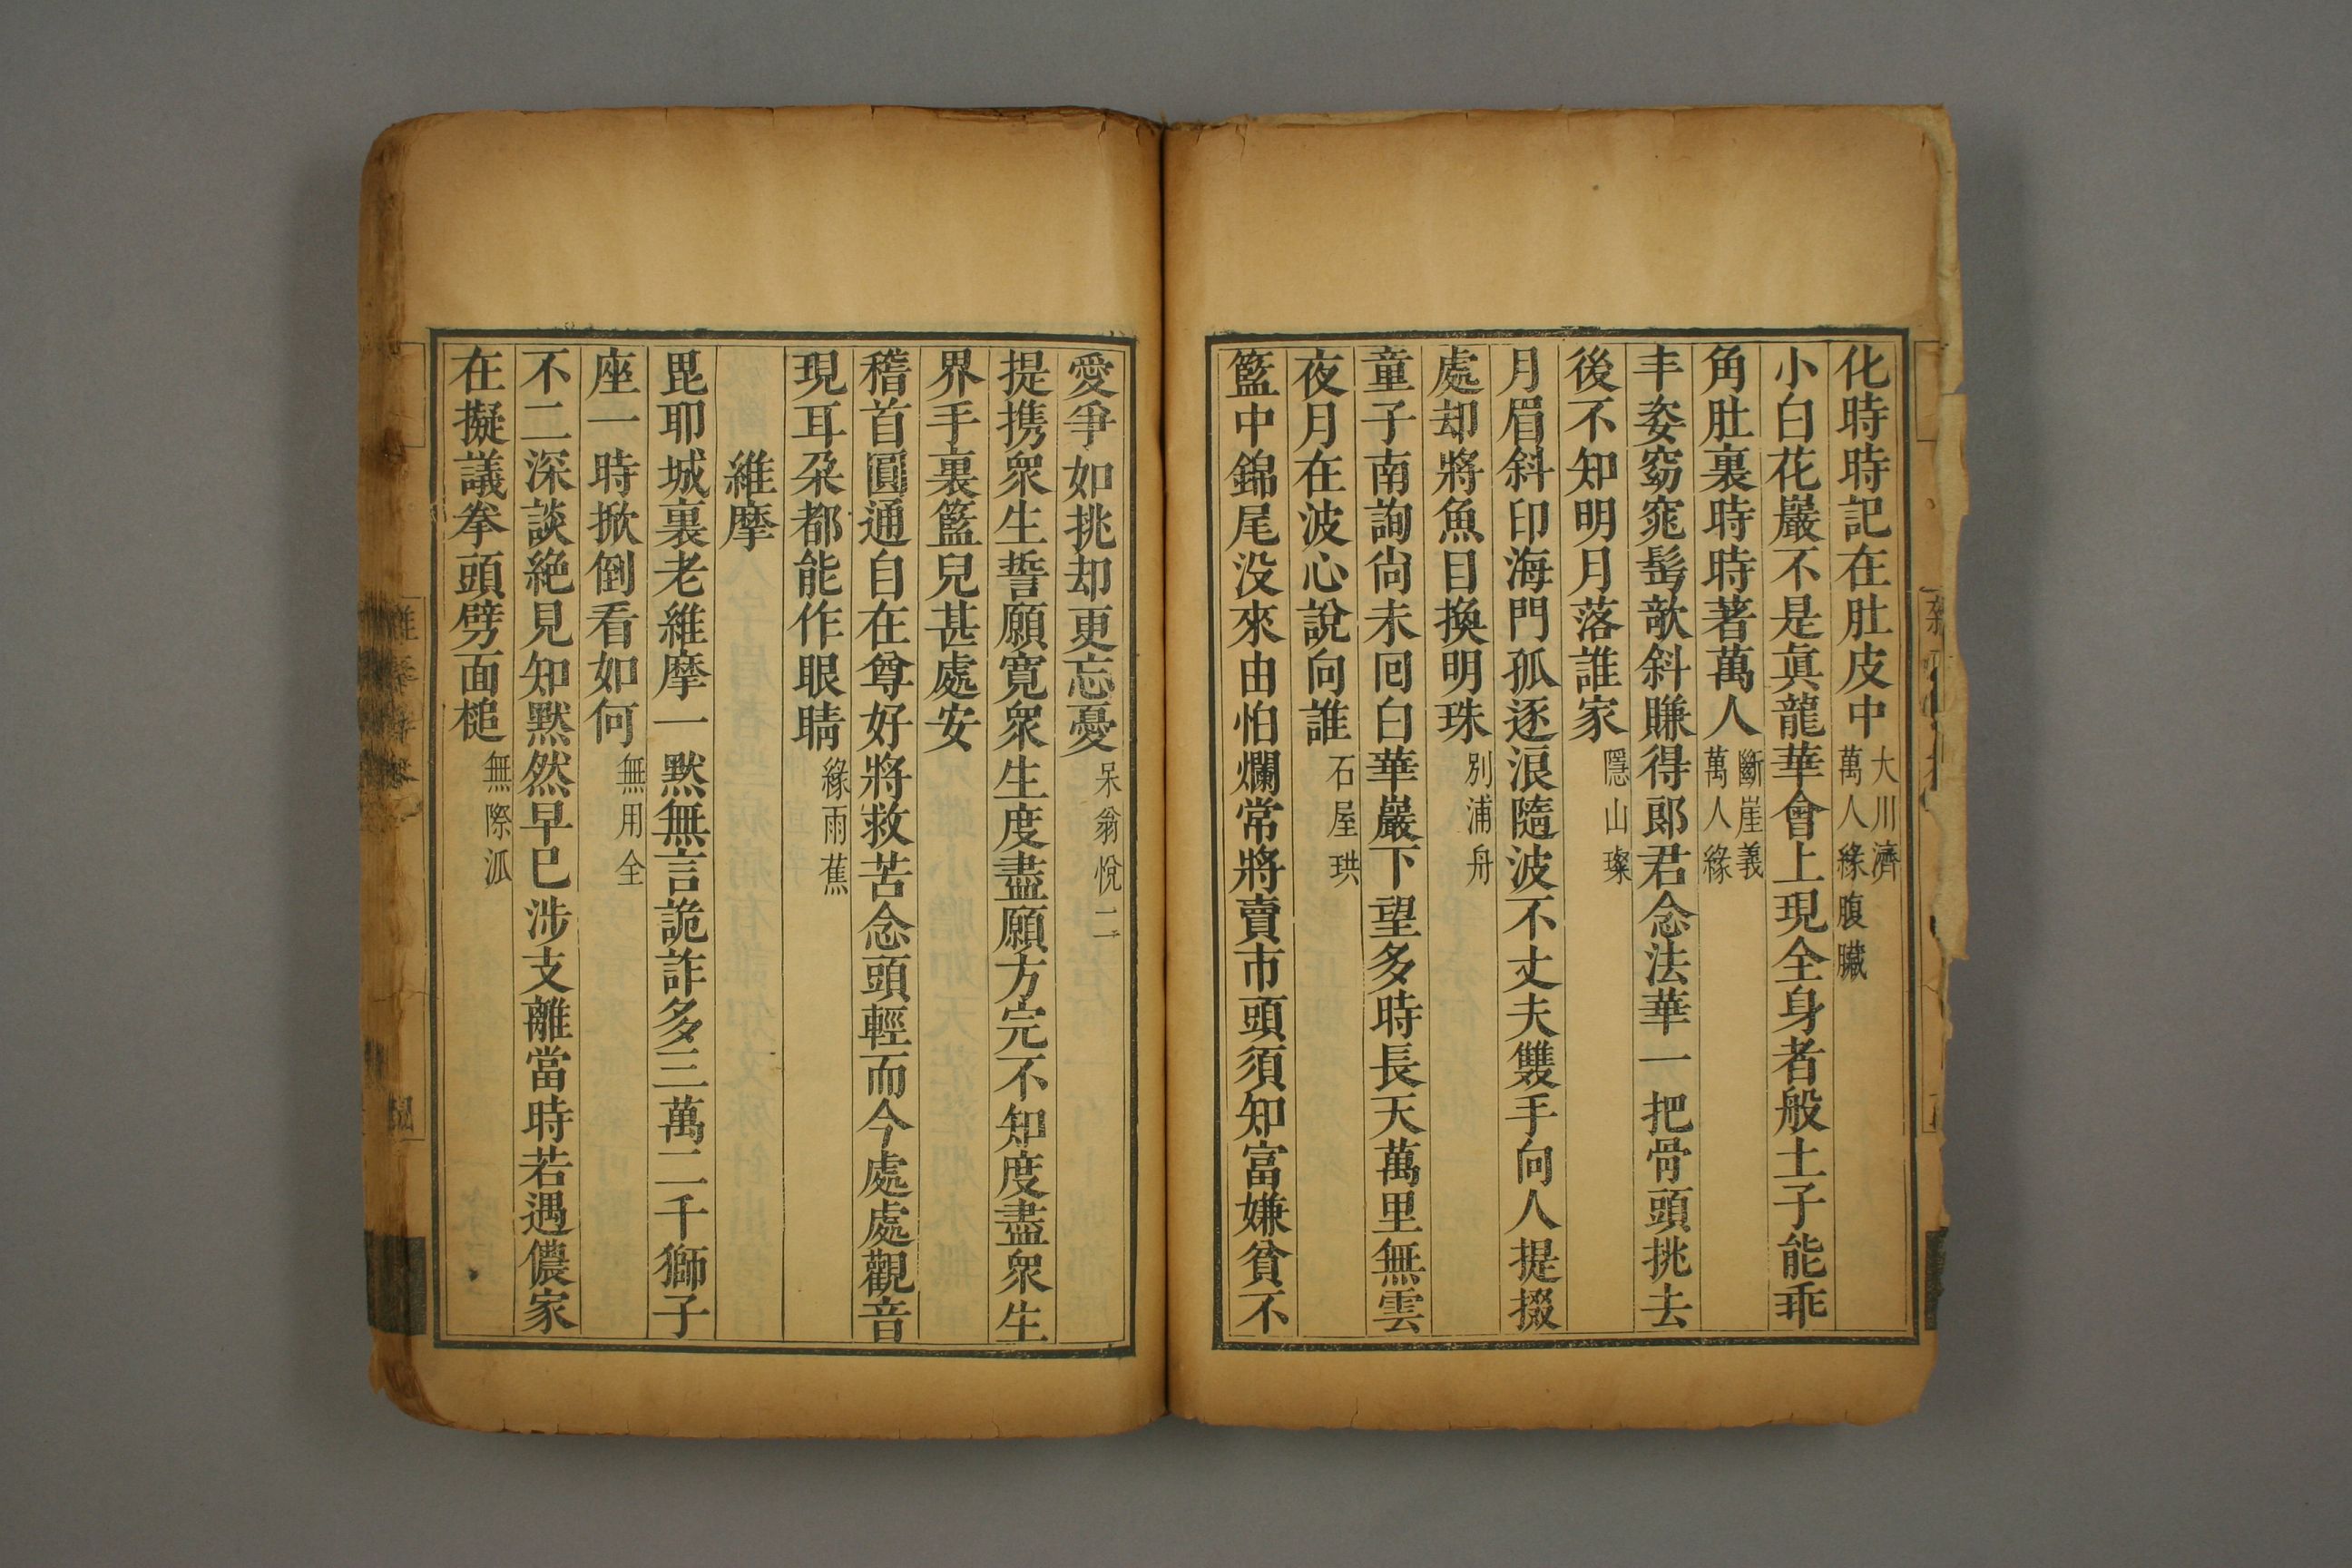 化時時記在肚皮中大川濟萬人緣腹臟
小白花巖不是眞龍華會上現全身者般土子能乖
角肚裏時時著萬人斷崖義萬人緣
丰姿窈窕髩欹斜賺得郎君念法華一把骨頭挑去
後不知明月落誰家隱山璨
月眉斜印海門孤逐浪隨波不丈夫雙手向人提掇
處却將魚目換明珠別浦舟
童子南詢尙未囘白華巖下望多時長天萬里無雲
夜月在波心說向誰石屋珙
籃中錦尾没來由怕爛常將賣市頭須知富嫌貧不
愛爭如挑却更忘憂呆翁悅二
提携衆生誓願寬衆生度盡願方完不知度盡衆生
界手裏籃兒甚處安
稽首圓通自在尊好將救苦念頭輕而今處處觀音
現耳朶都能作眼睛緣雨蕉
維摩
毘耶城裏老維摩一默無言詭詐多三萬二千獅子
座一時掀倒看如何無用全
不二深談絶見知默然早已涉支離當時若遇儂家
在擬議拳頭劈面槌無際泒